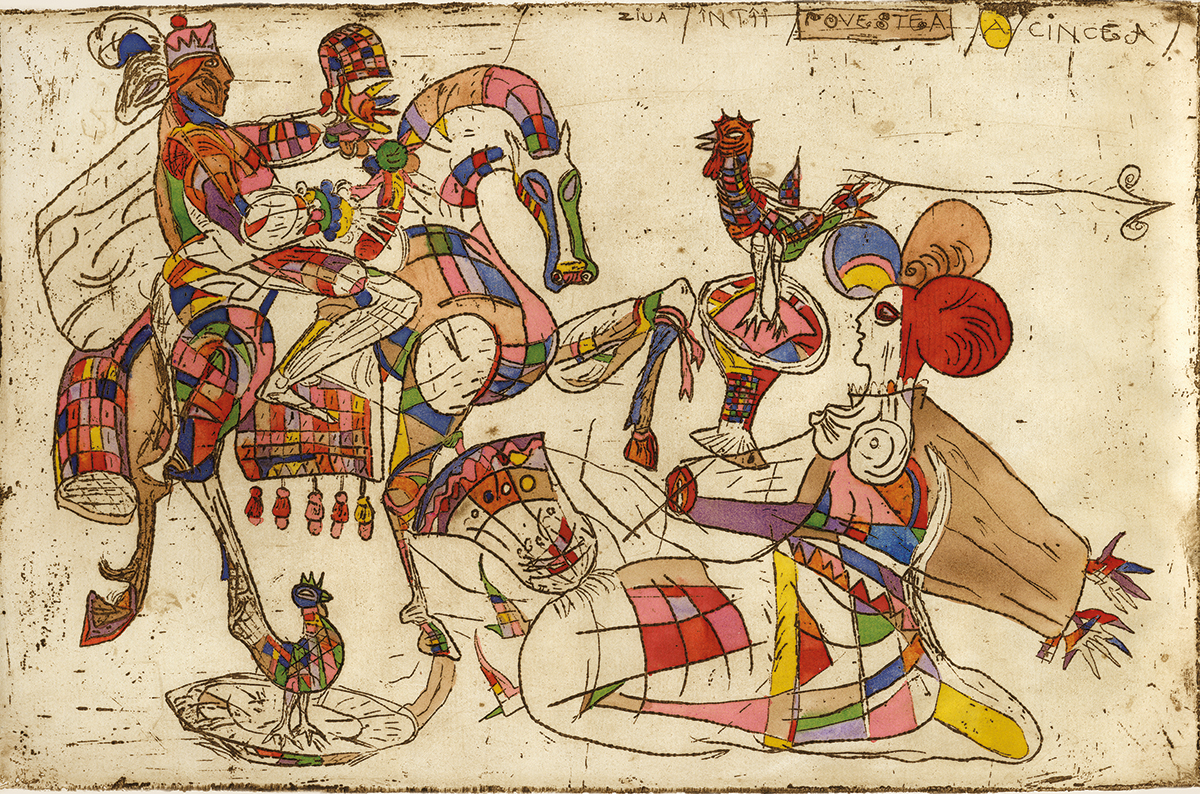 ZIUA ÎNTÎI POVESTEA A CINCEA